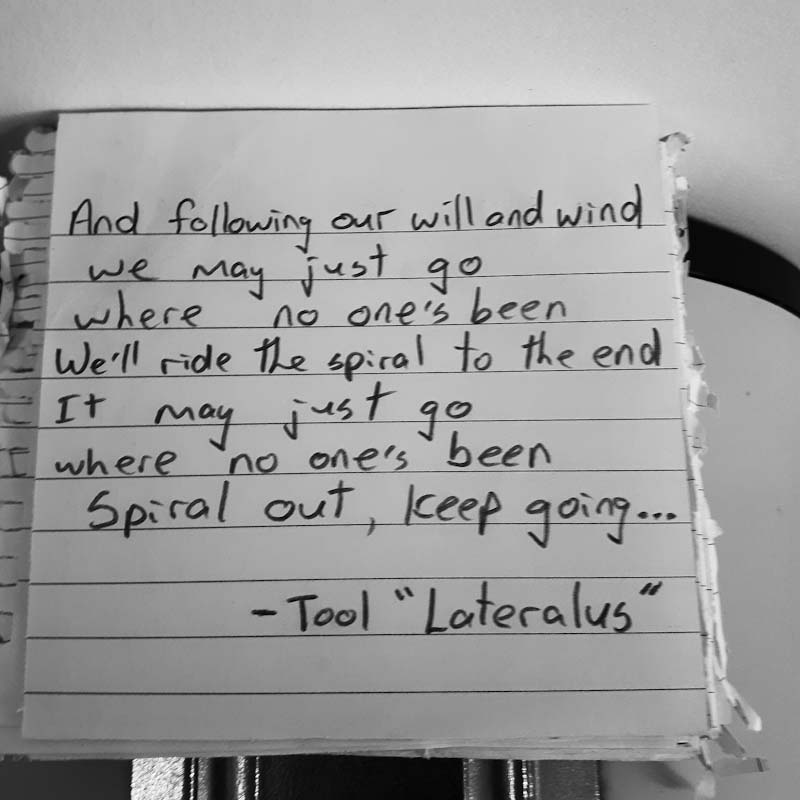 And following our will and wind
we may just go
where no one's been
We'll ride the spiral to the end
It may just go
where no one's been
Spiral out, keep going...
- Tool "Lateralus"